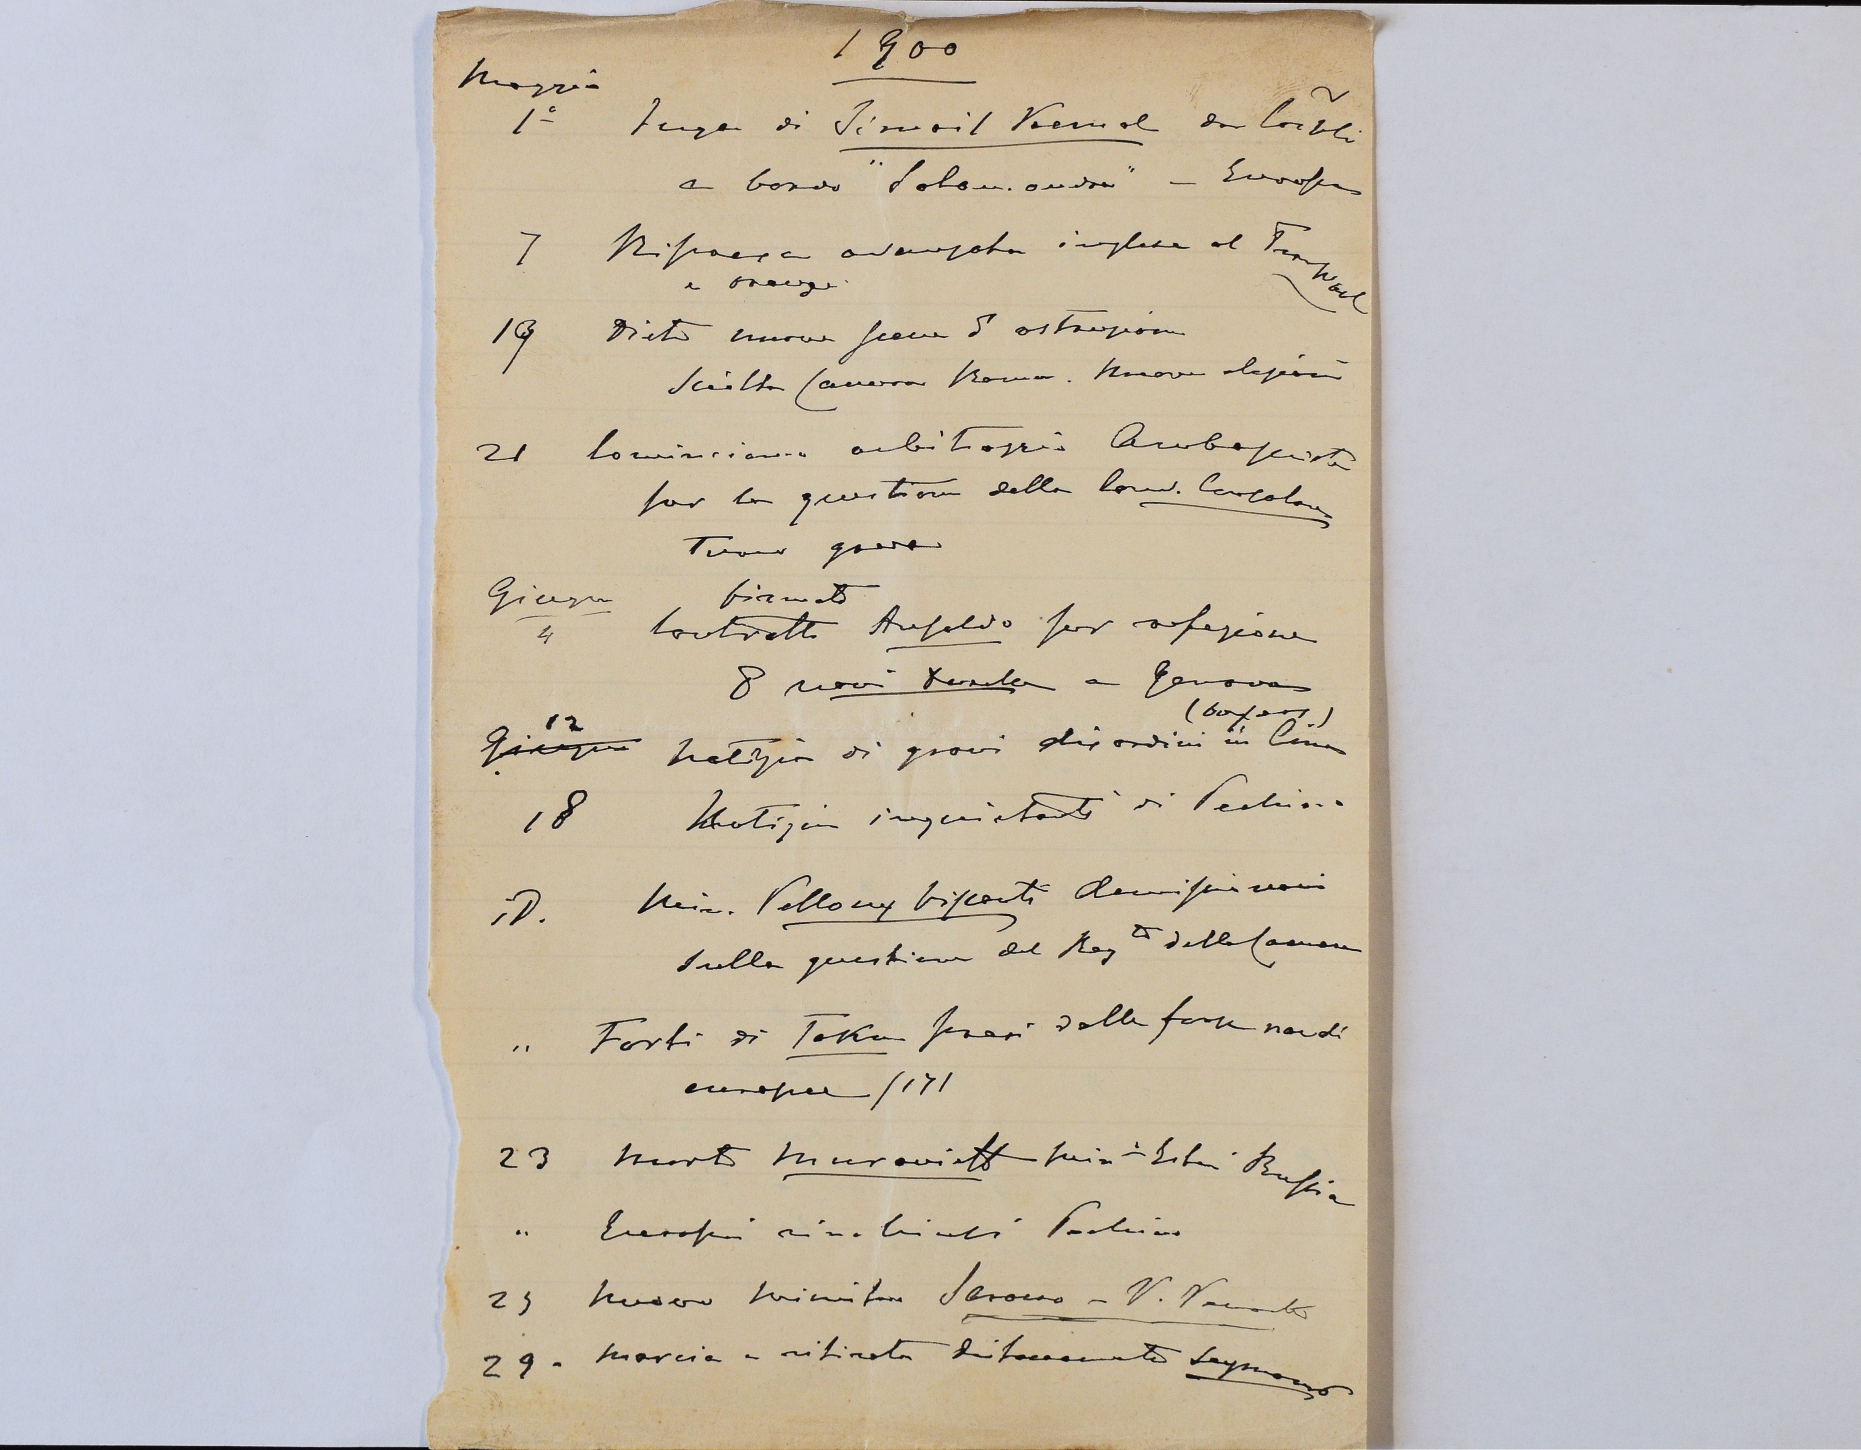 1900
Maggio
1° Fuga di Ismail Kemal da Co/poli
a bordo "Salamandra" - Europa
7 Ripresa avanzata inglese al Transvaal
e Orange
19 Dietro nuove scene d'ostruzione
Sciolta Camera Roma. Nuove elezioni
21 Cominciano arbitraggio Ambasciate
per la questione della Conv. Consolare
Turco greca
Giugno firmato
4 Contratto Ansaldo per rifazione
8 navi turche a Genova
(boxers)
12 Giugno Notizia di gravi disordini in Cina
18 Notizie inquietanti di Pechino
iD. Min. Pelloux Visconti dimissionari
sulla questione del Reg.to della Camera
" Forti di Taku presi dalle forze navali
europee /17/
23 Morto Muravieff Min° Esteri Russia
" Europei rinchiusi Pechino
25 Nuovo ministero Saracco - V. Venosta
29 - Marcia e ritirata distaccamento Seymour